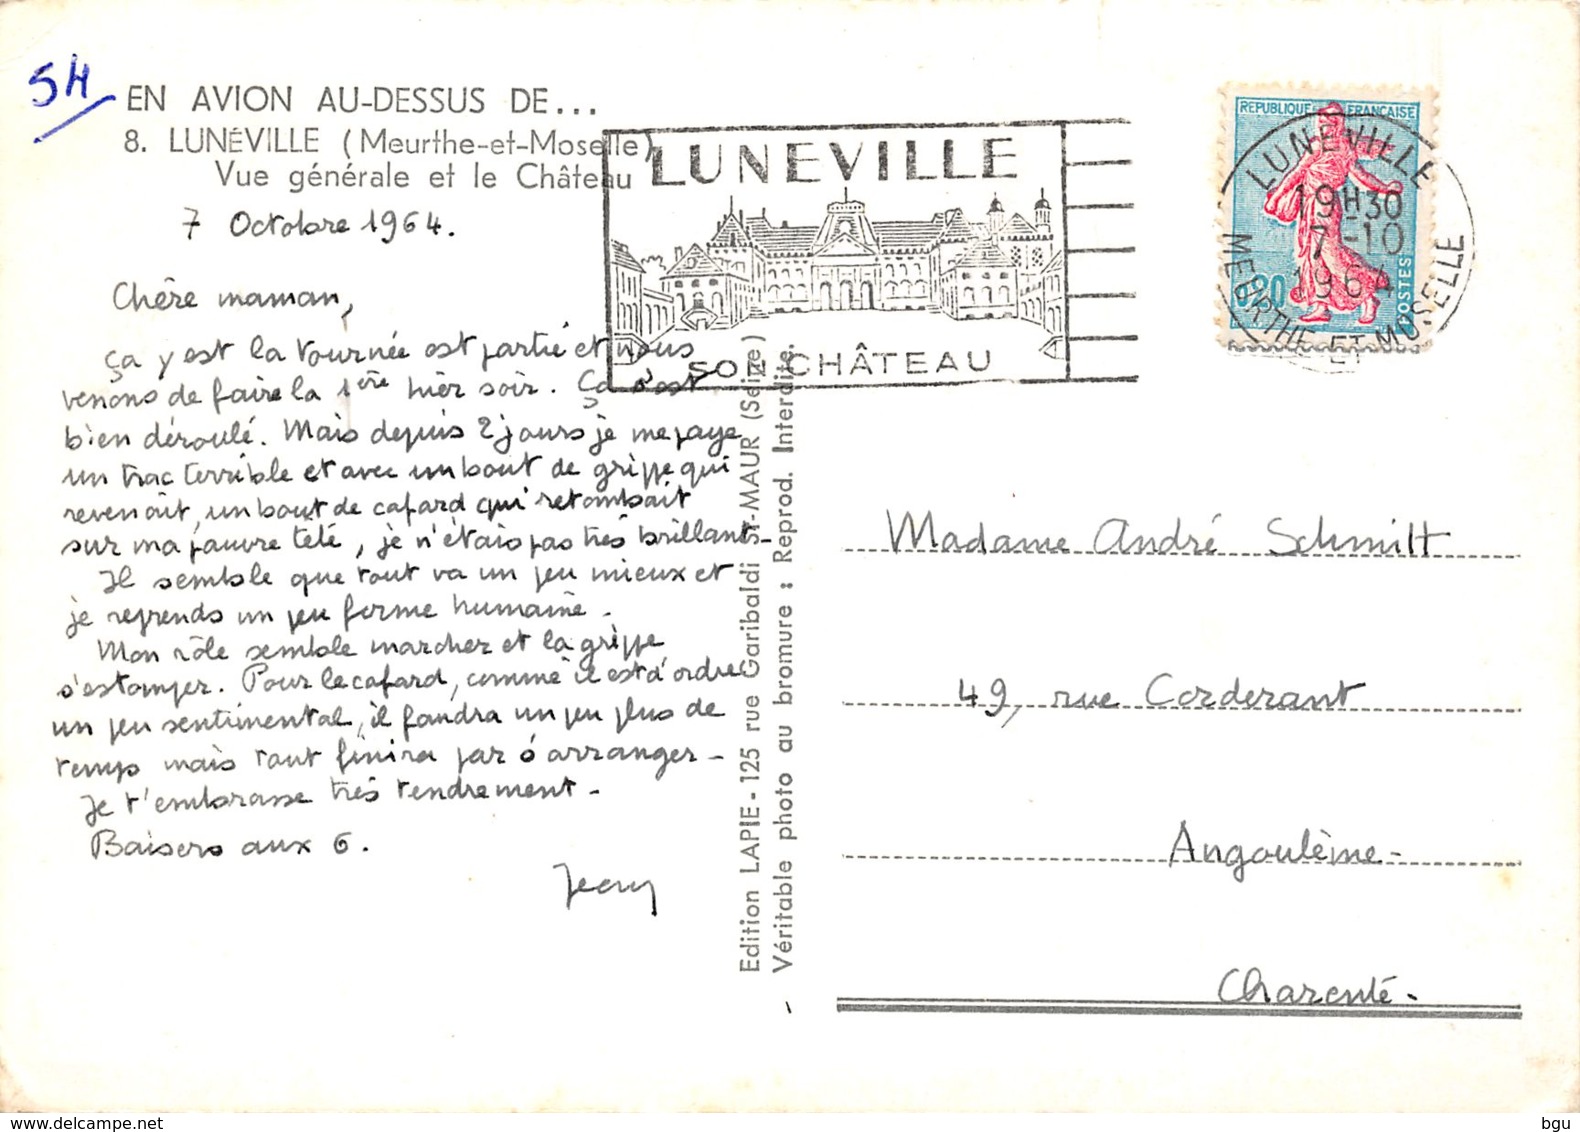 54
EN AVION AU-DESSUS DE...
8. LUNÉVILLE (Meurthe-et-Moselle)
Vue générale et le Château
7 Octobre 1964.
Chère maman,
ça y est la tournée est partie et nous
venons de faire la 1ère hier soir. Ça s'est
bien déroulé. Mais depuis 2 jours je me paye
un trac terrible et avec un bout de grippe qui
revenait, un bout de cafard qui retombait
sur ma pauvre tête, je n'étais pas très brillant-
Il semble que tout va un peu mieux et
je reprends un peu forme humaine.
Mon rôle semble marcher et la grippe
s'estomper. Pour le cafard, comme il est d'ordre
un peu sentimental, il faudra un peu plus de
temps mais tout finira par s'arranger-
Je t'embrasse très tendrement-
Baisers aux 6.
LUNEVILLE
SON CHÂTEAU
REPUBLIQUE FRANÇAISE
0,20
POSTES
LUNEVILLE
19H30
7-10
1964
MEURTHE ET MOSELLE
Edition LAPIE - 125 rue Garibaldi St-MAUR (Seine)
Véritable photo au bromure : Reprod. Interdite.
Madame André Schmitt
49, rue Corderant
Angoulème-
Charente-
bgu
delcampe.net